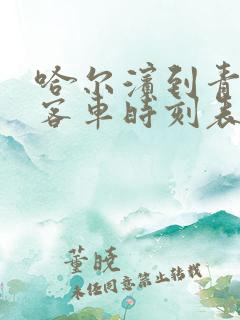 哈尔滨到青
客车时刻表
董晓
未经同意禁止转载